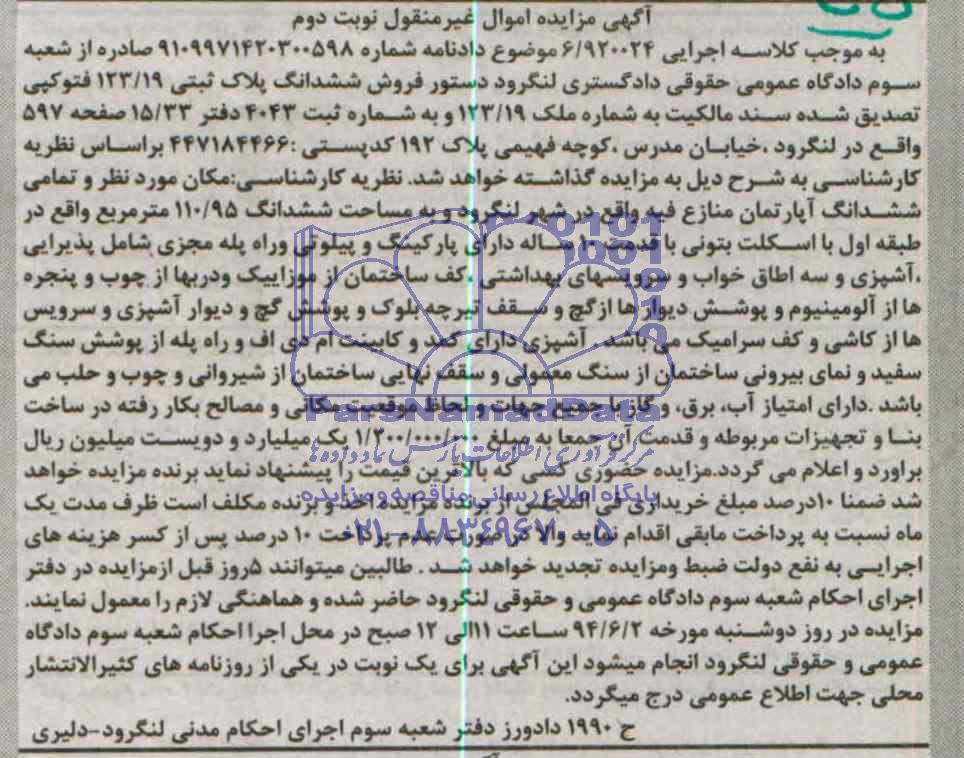 آگهی مزایده اموال غیرمنقول نوبت دوم
به موجب کلاسه اجرایی ۶/۹۲۰۰۲۴ موضوع دادنامه شماره ۹۱۰۹۹۷۱۴۲۰۳۰۰۵۹۸ صادره از شعبه
سوم دادگاه عمومی حقوقی دادگستری لنگرود دستور فروش ششدانگ پلاک ثبتی ۱۲۳/۱۹ فتوکپی
تصدیق شده سند مالکیت به شماره ملک ۱۲۳/۱۹ و به شماره ثبت ۴۰۴۳ دفتر ۱۵/۳۳ صفحه ۵۹۷
واقع در لنگرود ،خیابان مدرس ،کوچه فهیمی پلاک ۱۹۲ کدپستی :۴۴۷۱۸۴۴۶۶ براساس نظریه
کارشناسی به شرح دیل به مزایده گذاشته خواهد شد. نظریه کارشناسی:مکان مورد نظر و تمامی
ششدانگ آپارتمان منازع فیه واقع در شهر لنگرود و به مساحت ششدانگ ۱۱۰/۹۵ مترمربع واقع در
طبقه اول با اسکلت بتونی با قدمت ۱۰ ساله دارای پارکینگ و پیلوتی وراه پله مجزی شامل پذیرایی
،آشپزی و سه اطاق خواب و سرویسهای بهداشتی ،کف ساختمان از موزاییک ودربها از چوب و پنجره
ها از آلومینیوم و پوشش دیوار ها ازگچ و سقف تیرچه بلوک و پوشش گچ و دیوار آشپزی و سرویس
ها از کاشی و کف سرامیک می باشد . آشپزی دارای کمد و کابینت ام دی اف و راه پله از پوشش سنگ
سفید و نمای بیرونی ساختمان از سنگ معمولی و سقف نهایی ساختمان از شیروانی و چوب و حلب می
باشد .دارای امتیاز آب، برق، و گاز با جمیع جهات و لحاظ موقعیت مکانی و مصالح بکار رفته در ساخت
بنا و تجهیزات مربوطه و قدمت آن جمعا به مبلغ ۱/۲۰۰/۰۰۰/۰۰۰ یک میلیارد و دویست میلیون ریال
براورد و اعلام می گردد.مزایده حضوری کسی که بالاترین قیمت را پیشنهاد نماید برنده مزایده خواهد
شد ضمنا ۱۰درصد مبلغ خریداری فی المجلس از برنده مزایده اخذ و برنده مکلف است ظرف مدت یک
ماه نسبت به پرداخت مابقی اقدام نماید والا در صورت عدم پرداخت ۱۰ درصد پس از کسر هزینه های
اجرایی به نفع دولت ضبط ومزایده تجدید خواهد شد . طالبین میتوانند ۵روز قبل ازمزایده در دفتر
اجرای احکام شعبه سوم دادگاه عمومی و حقوقی لنگرود حاضر شده و هماهنگی لازم را معمول نمایند.
مزایده در روز دوشنبه مورخه ۹۴/۶/۲ ساعت ۱۱الی ۱۲ صبح در محل اجرا احکام شعبه سوم دادگاه
عمومی و حقوقی لنگرود انجام میشود این آگهی برای یک نوبت در یکی از روزنامه های کثیرالانتشار
محلی جهت اطلاع عمومی درج میگردد.
ج ۱۹۹۰ دادورز دفتر شعبه سوم اجرای احکام مدنی لنگرود-دلیری
ParsNamadData
پایگاه اطلاع رسانی مناقصه و مزایده
۰۲۱-۸۸۳۴۹۶۷۰-۵